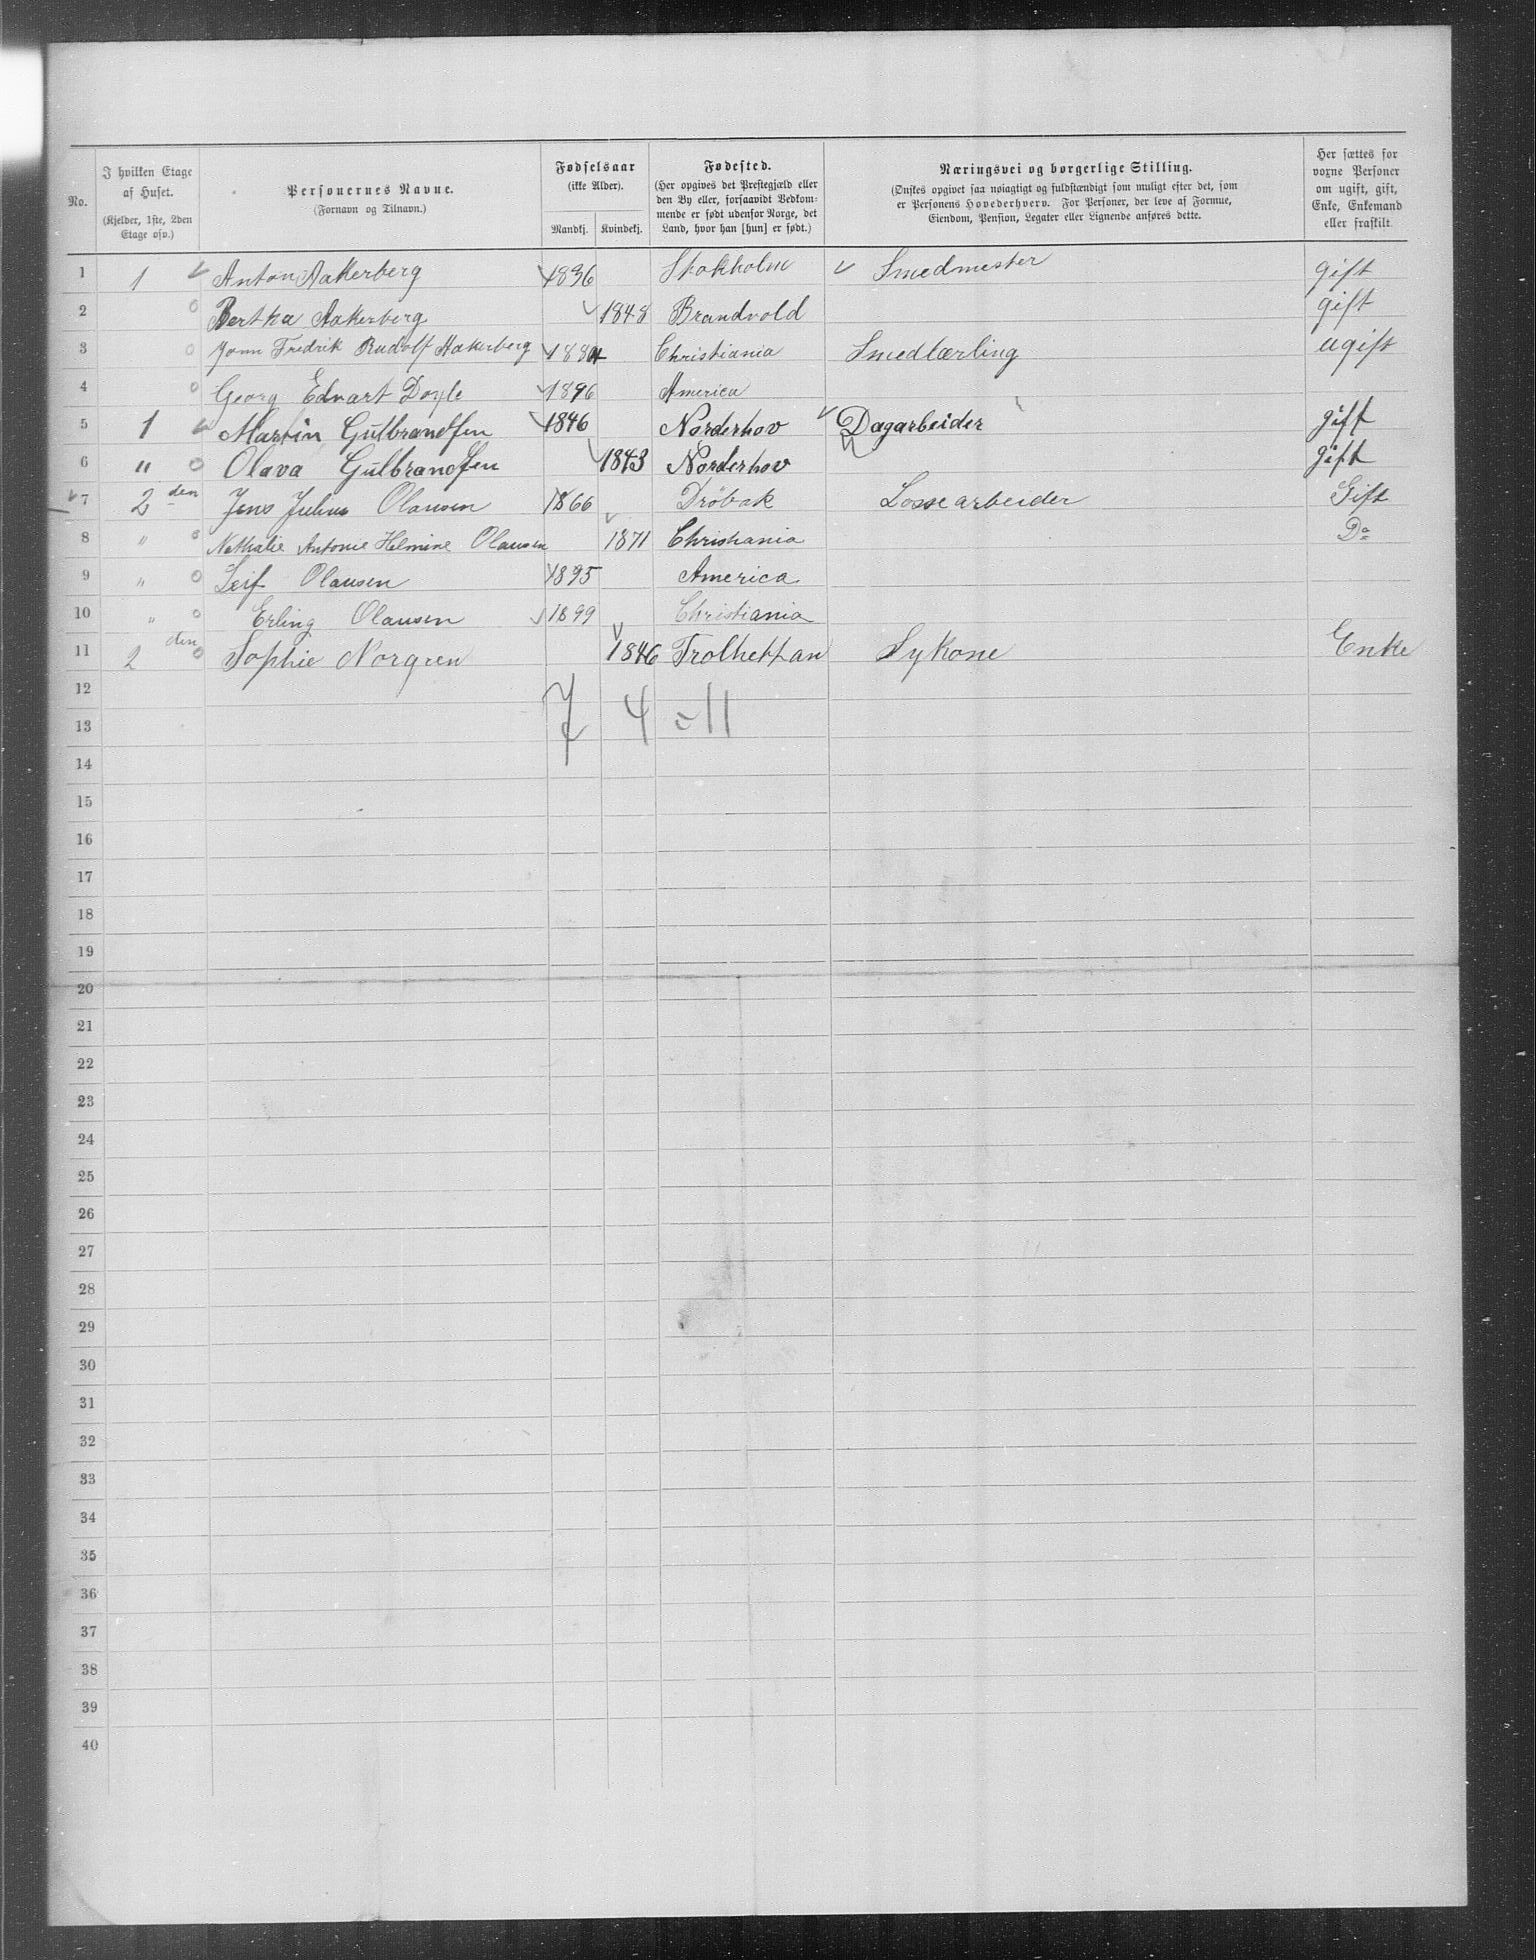 No.
I hvilken Etage af Huset.
(Kjelder, 1ste, 2den Etage osv.)
Personernes Navne.
(Fornavn og Tilnavn.)
Fødselsaar
(ikke Alder).
Mandkj. Kvindekj.
Fødested.
(Her opgives det Prestegjæld eller
den By eller, forsaavidt Vedkom-
mende er født udenfor Norge, det
Land, hvor han [hun] er født.)
Næringsvei og borgerlige Stilling.
(Ønskes opgivet saa nøiagtigt og fuldstændigt som muligt efter det, som
er Personens Hovederhverv. For Personer, der leve af Formue,
Eiendom, Pension, Legater eller Lignende anføres dette.
Her sættes for
voxne Personer
om ugift, gift,
Enke, Enkemand
eller fraskilt.
1 1 Anton Aakerberg 1836 Stokholm Smedmester gift
2 Bertha Aakerberg 1848 Brandvold gift
3 Fredrik Rudolf Aakerberg 1884 Christiania Smedlærling ugift
4 Georg Edvart Doyle 1896 America
5 1 Martin Gulbrandsen 1846 Norderhov Dagarbeider gift
6 " Olava Gulbrandsen 1843 Norderhov gift
7 2den Jens Julius Olausen 1866 Drøbak Lossearbeider Gift
8 " Nathalie Antonie Helmine Olausen 1871 Christiania Do
9 " Leif Olausen 1895 America
10 " Erling Olausen 1899 Christiania
11 2den Sophie Norgren 1846 Trolhettan Sykone Enke
12
7 4 = 11
13
14
15
16
17
18
19
20
21
22
23
24
25
26
27
28
29
30
31
32
33
34
35
36
37
38
39
40